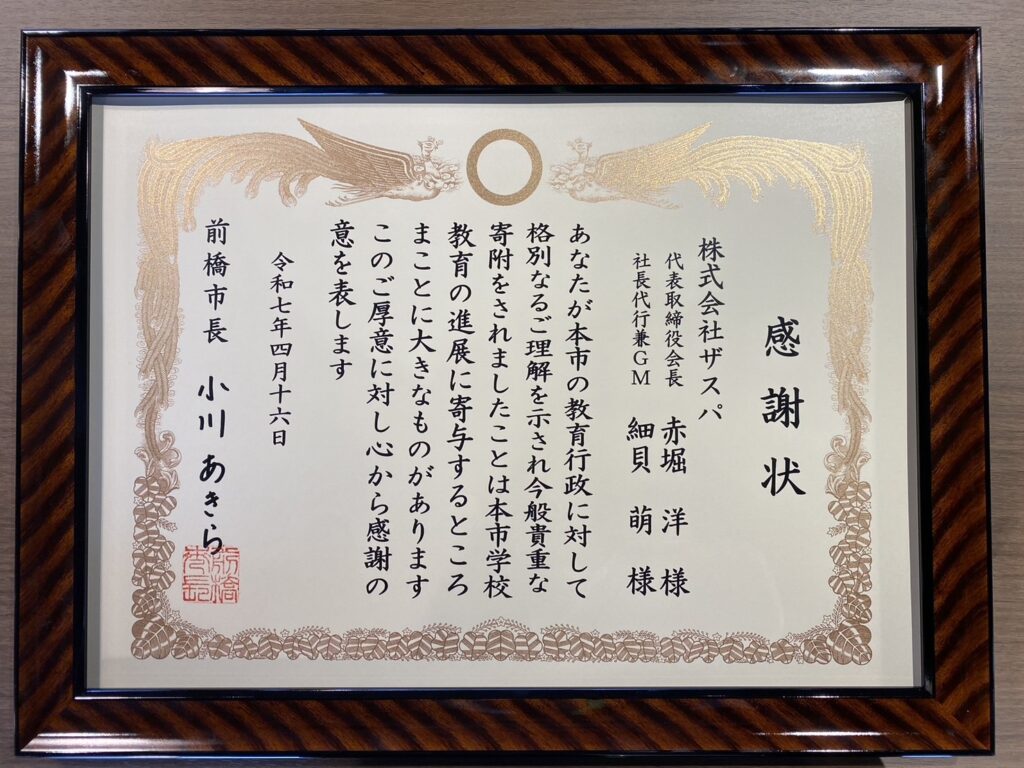 感謝状
株式会社ザスパ
代表取締役会長 赤堀 洋 様
社長代行兼GM 細貝 萌 様
あなたが本市の教育行政に対して
格別なるご理解を示され今般貴重な
寄附をされましたことは本市学校
教育の進展に寄与するところ
まことに大きなものがあります
このご厚意に対し心から感謝の
意を表します
令和七年四月十六日
前橋市長 小川あきら
前橋市長